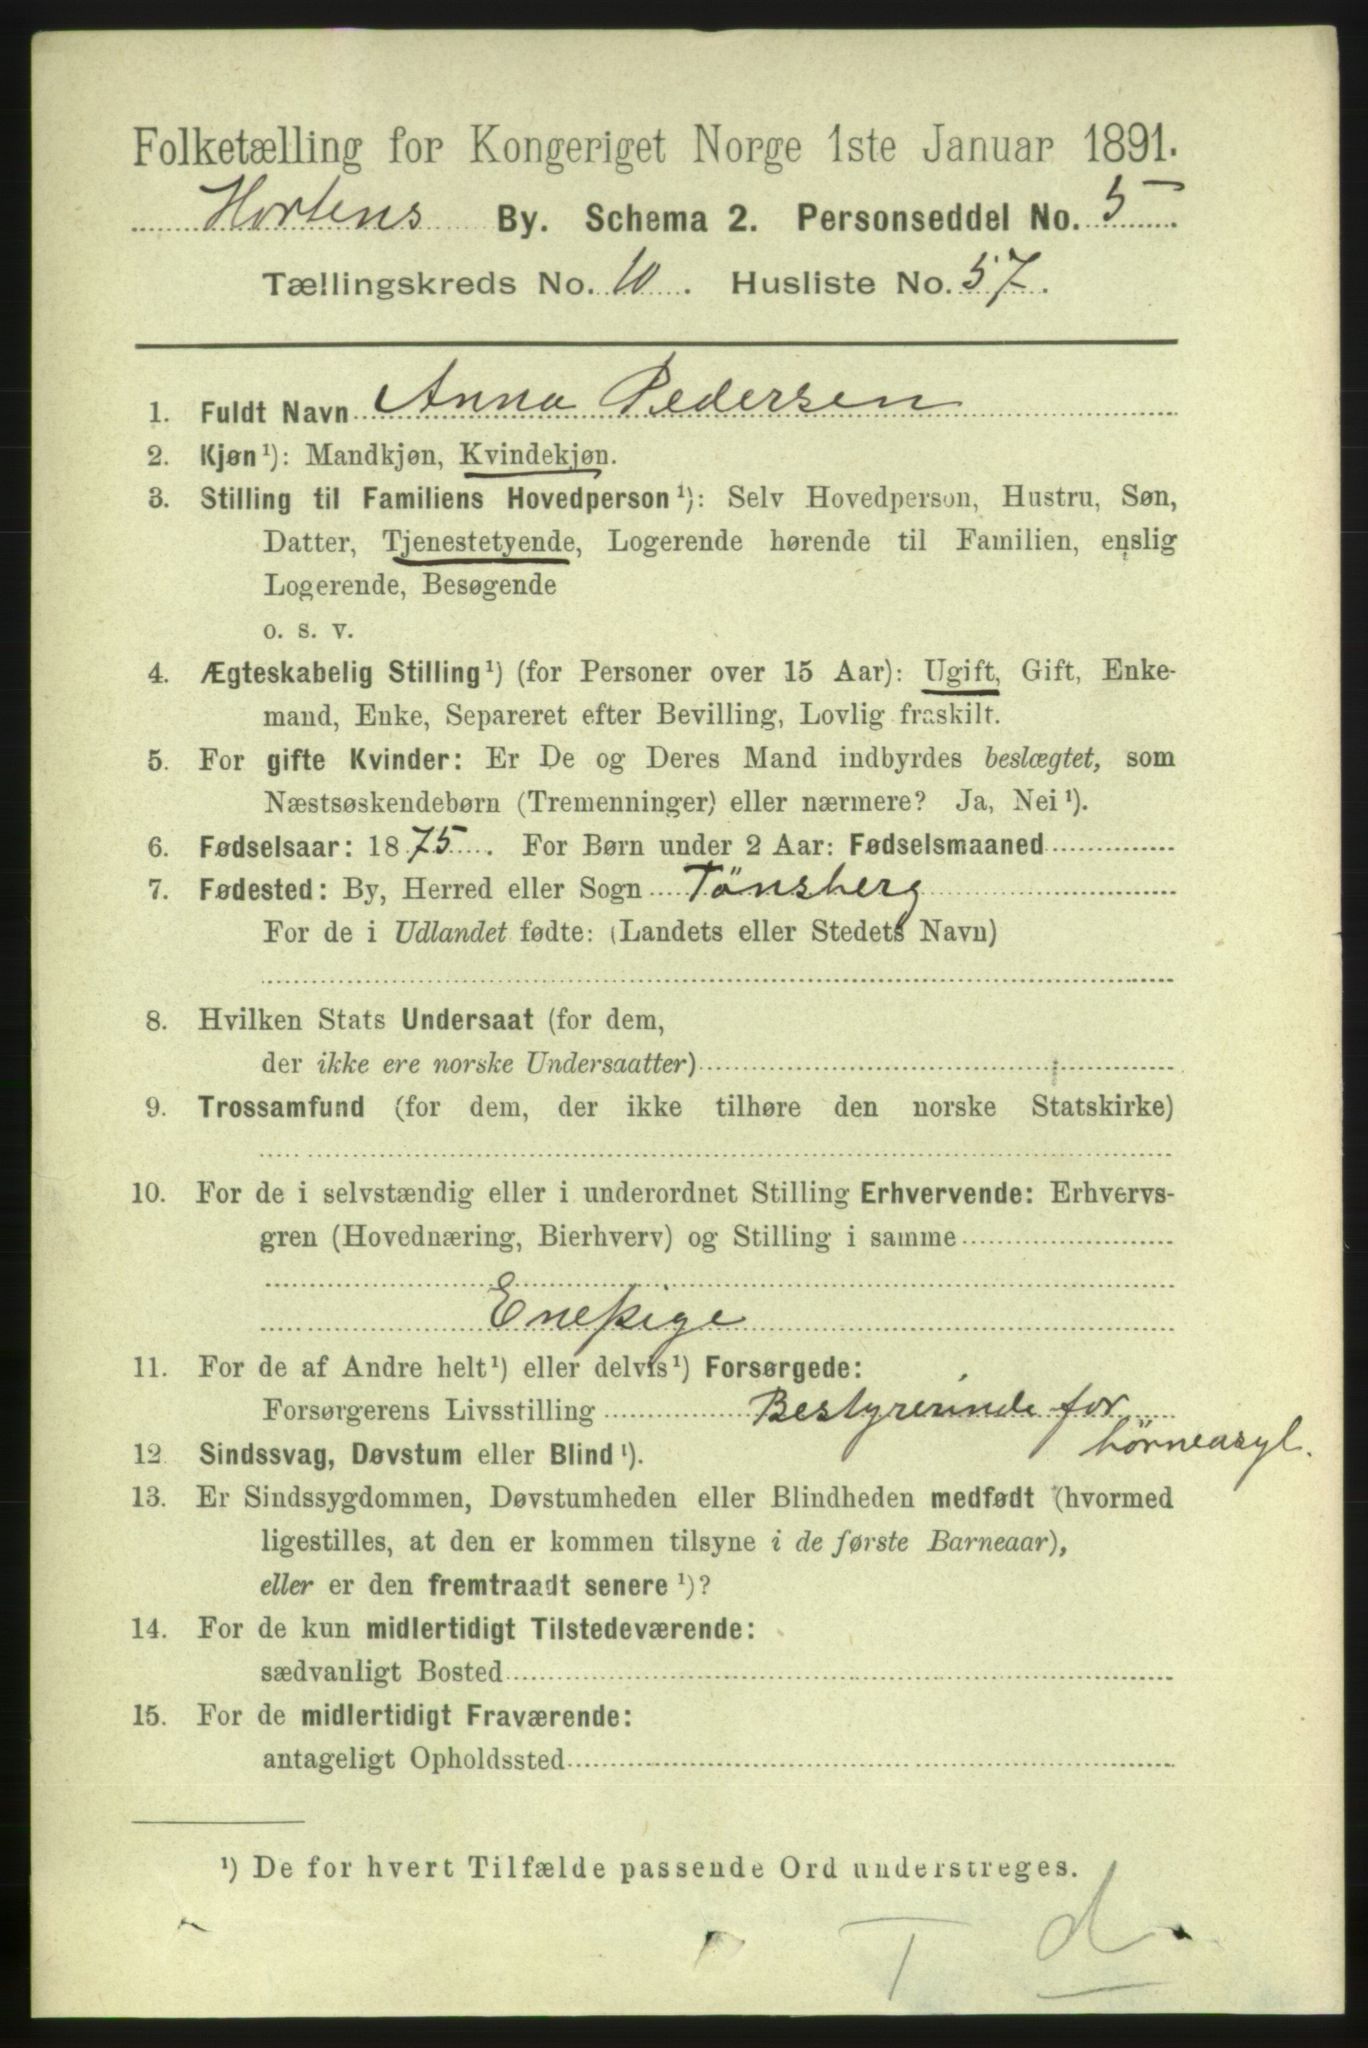 Folketælling for Kongeriget Norge 1ste Januar 1891.
Hortens By. Schema 2. Personseddel No. 5
Tællingskreds No. 10. Husliste No. 57.
1. Fuldt Navn Anna Pedersen
2. Kjøn¹): Mandkjøn, Kvindekjøn.
3. Stilling til Familiens Hovedperson¹): Selv Hovedperson, Hustru, Søn,
Datter, Tjenestetyende, Logerende hørende til Familien, enslig
Logerende, Besøgende
o. s. v.
4. Ægteskabelig Stilling¹) (for Personer over 15 Aar): Ugift, Gift, Enke-
mand, Enke, Separeret efter Bevilling, Lovlig fraskilt.
5. For gifte Kvinder: Er De og Deres Mand indbyrdes beslægtet, som
Næstsøskendebørn (Tremenninger) eller nærmere? Ja, Nei¹).
6. Fødselsaar: 1875. For Børn under 2 Aar: Fødselsmaaned
7. Fødested: By, Herred eller Sogn Tönsberg
For de i Udlandet fødte: (Landets eller Stedets Navn)
8. Hvilken Stats Undersaat (for dem,
der ikke ere norske Undersaatter)
9. Trossamfund (for dem, der ikke tilhøre den norske Statskirke)
10. For de i selvstændig eller i underordnet Stilling Erhvervende: Erhvervs-
gren (Hovednæring, Bierhverv) og Stilling i samme
Enepige
11. For de af Andre helt¹) eller delvis¹) Forsørgede:
Forsørgerens Livsstilling Bestyrerinde for
börneasyl.
12 Sindssvag, Døvstum eller Blind¹).
13. Er Sindssygdommen, Døvstumheden eller Blindheden medfødt (hvormed
ligestilles, at den er kommen tilsyne i de første Barneaar),
eller er den fremtraadt senere¹)?
14. For de kun midlertidigt Tilstedeværende:
sædvanligt Bosted
15. For de midlertidigt Fraværende:
antageligt Opholdssted
¹) De for hvert Tilfælde passende Ord understreges.
T d